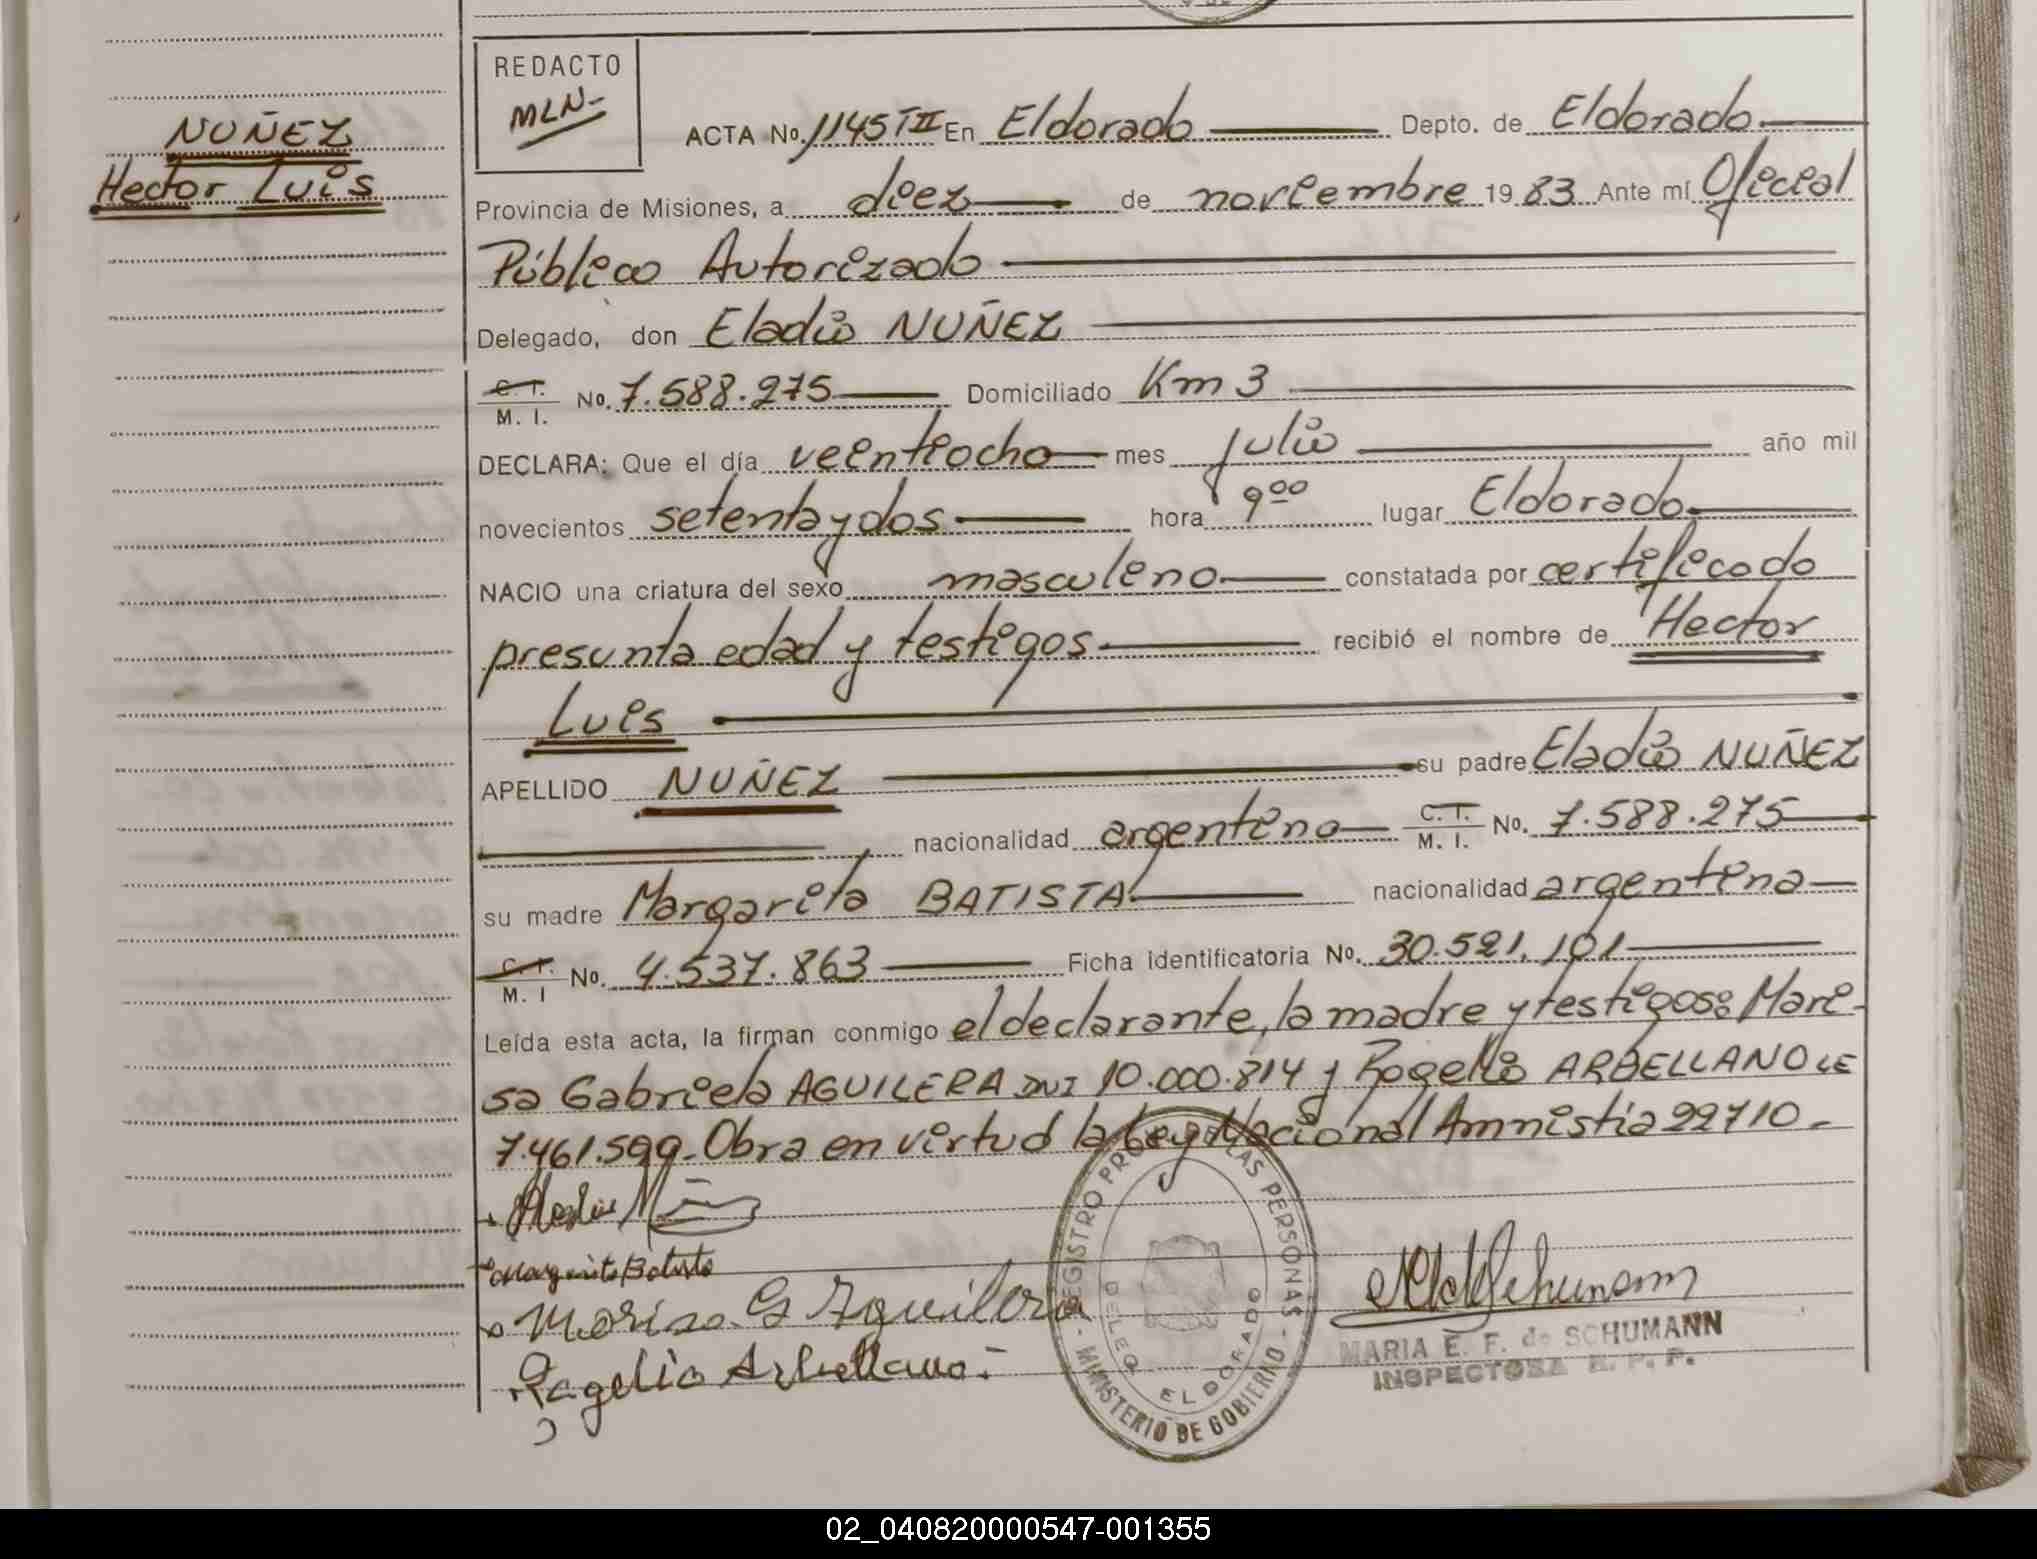 NUÑEZ
Hector Luis
REDACTO
MLN-
ACTA No. 1145 T II En Eldorado Depto. de Eldorado
Provincia de Misiones, a diez de noviembre 1983 Ante mí Oficial
Público Autorizado
Delegado, don Eladio NUÑEZ
C. I.
M. I. No. 7.588.275 Domiciliado Km 3
DECLARA: Que el día veintiocho mes julio año mil
novecientos setenta y dos hora 9 00 lugar Eldorado
NACIO una criatura del sexo masculino constatada por certificado
presunta edad y testigos recibió el nombre de Hector
Luis
APELLIDO NUÑEZ su padre Eladio NUÑEZ
nacionalidad argentino C. I. M. I. No. 7.588.275
su madre Margarita BATISTA nacionalidad argentina
C. I. M. I No. 4.537.863 Ficha identificatoria No. 30.521.101
Leída esta acta, la firman conmigo el declarante, la madre y testigos: Mari-
sa Gabriela AGUILERA DNI 10.000.814 y Rogelio ARBELLANO LE
7.461.599-Obra en virtud la Ley Nacional Amnistia 22710-
Margarita Batista
Marisa G Aguilera
Rogelio Arbellano.-
REGISTRO PROV. DE LAS PERSONAS
DELEG. ELDORADO
- MINISTERIO DE GOBIERNO -
MARIA E. F. de SCHUMANN
INSPECTORA R. P. P.
02_040820000547-001355